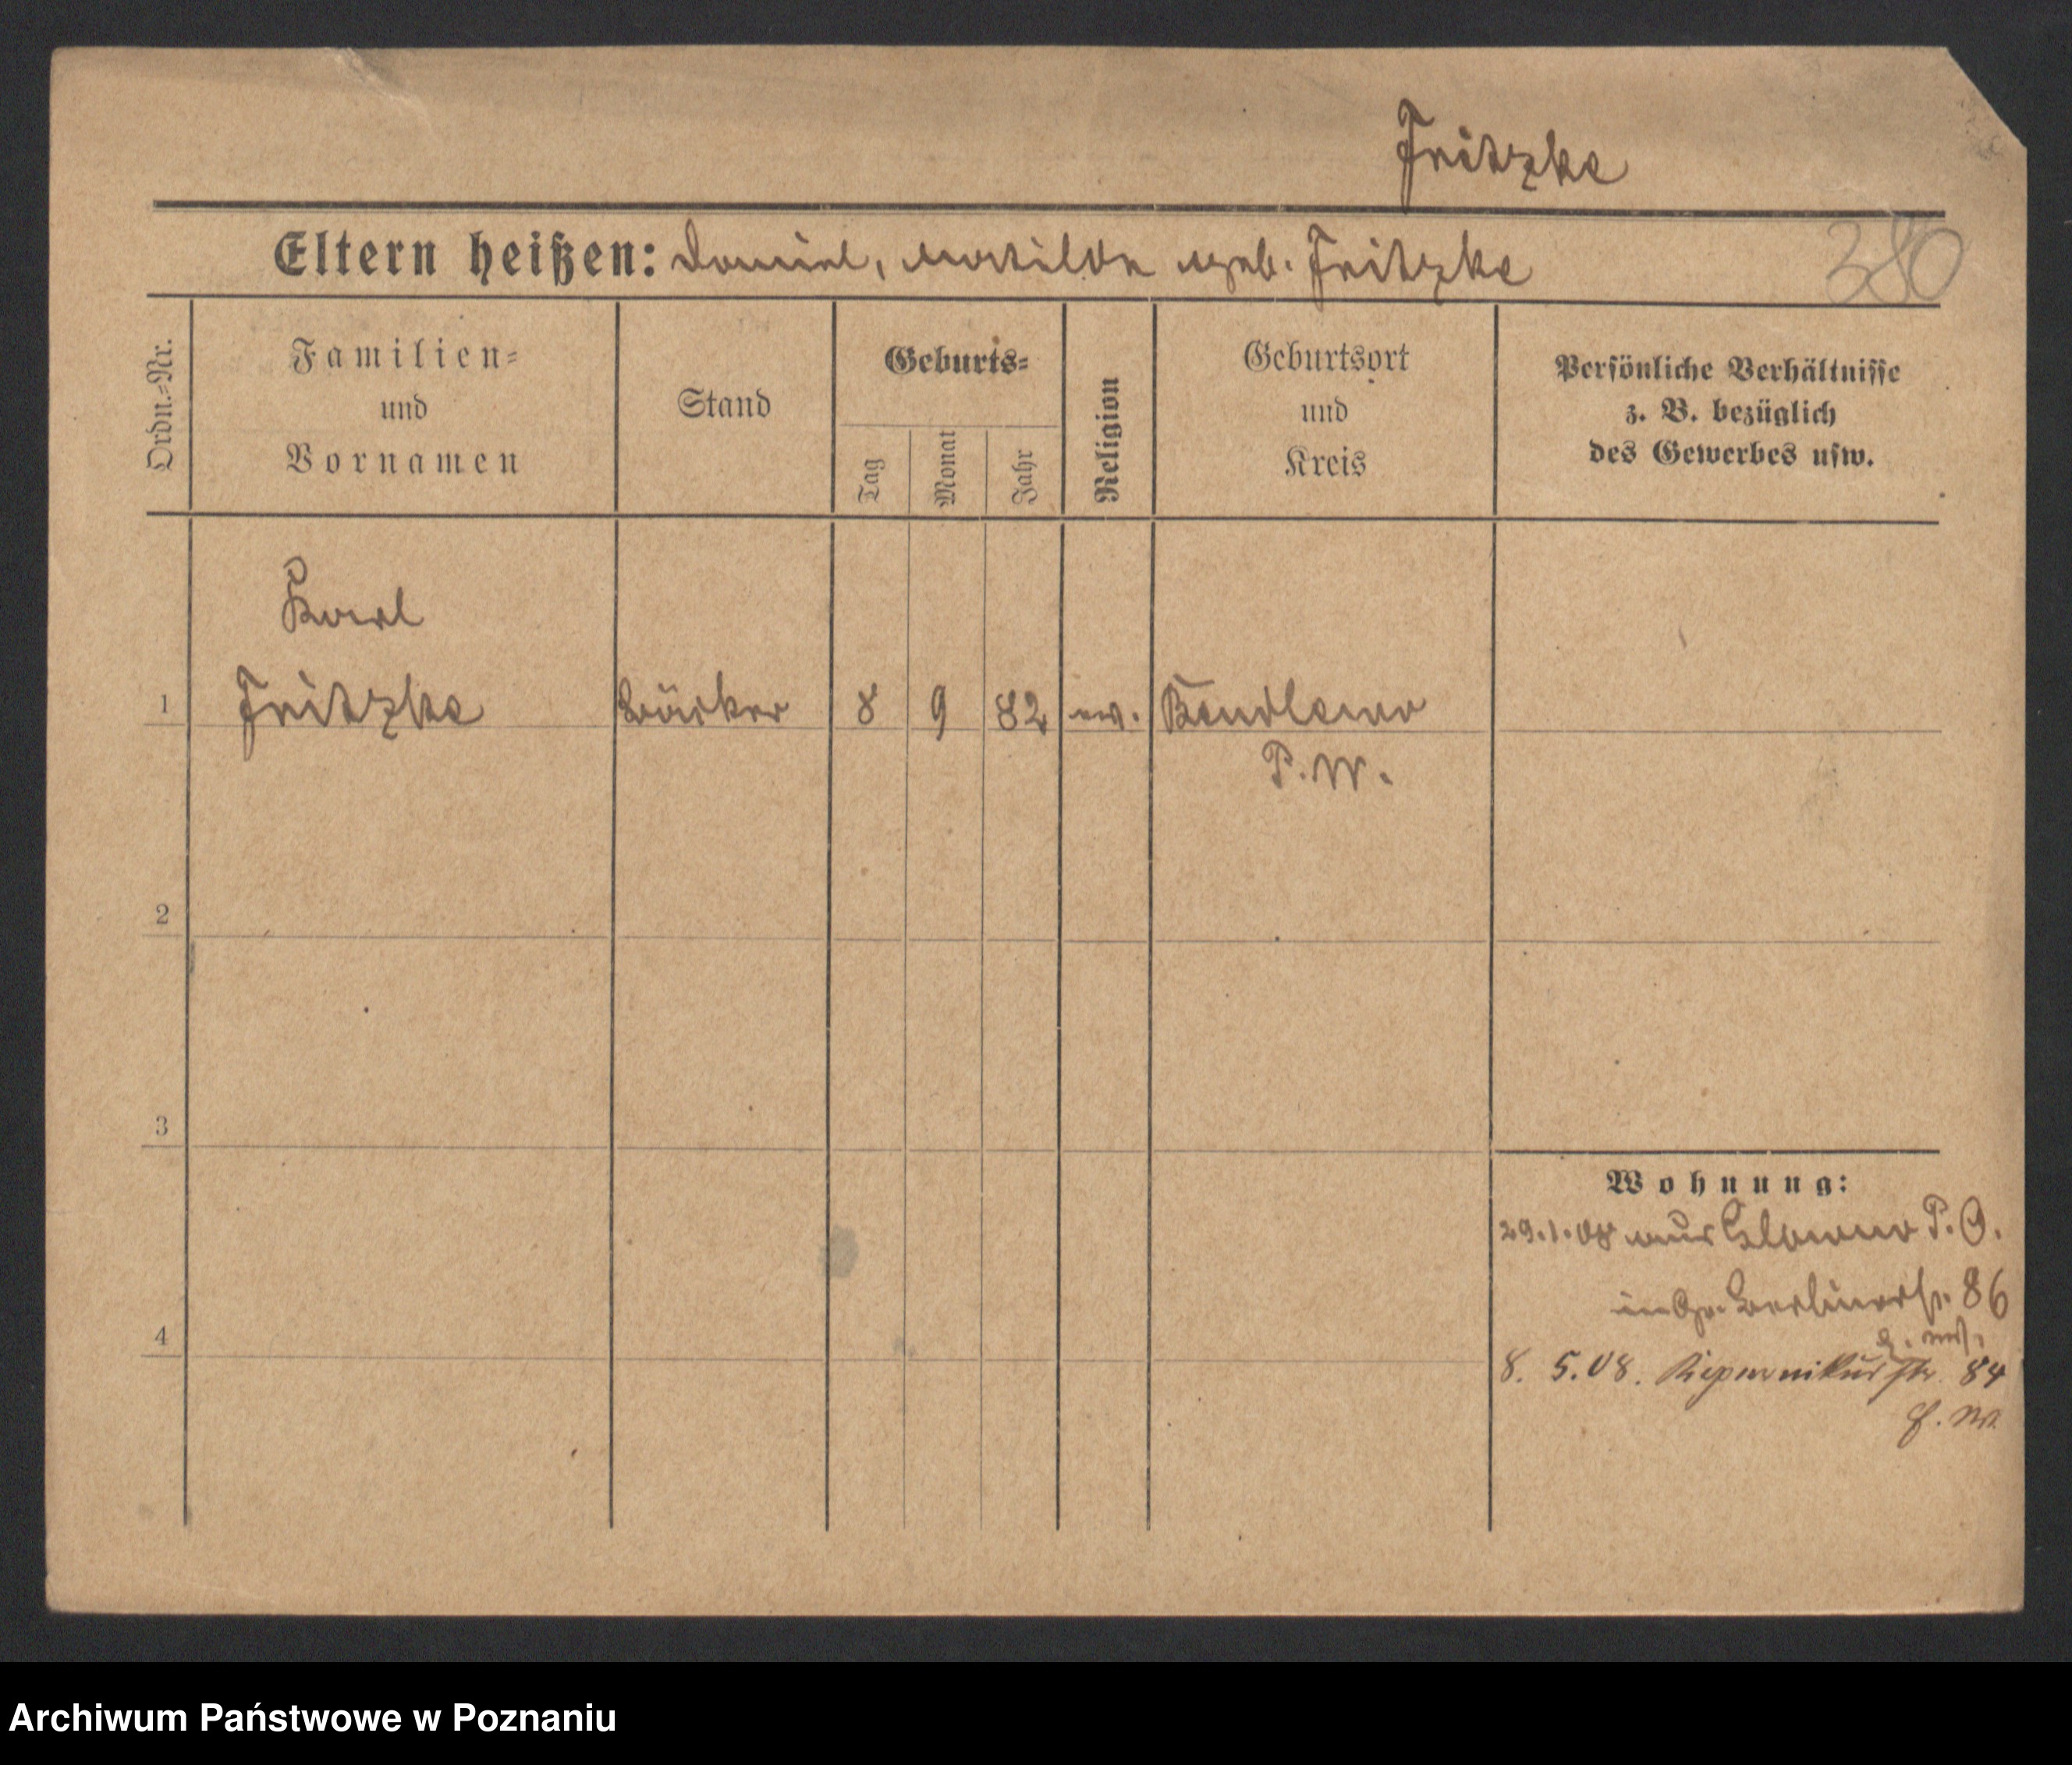 Fritzke
Eltern heißen: Daniel, Matilde geb. Fritzke
380
Ordn.=Nr.
Familien=
und
Vornamen
Stand
Geburts=
Tag
Monat
Jahr
Religion
Geburtsort
und
Kreis
Persönliche Verhältnisse
z. B. bezüglich
des Gewerbes usw.
Karl
1 Fritzke Bäcker 8 9 82 ev. Bendlewo
P.W.
2
3
4
Wohnung:
29.1.08 aus Glowno P.O.
Berlinerstr. 86
8. 5.08. Kopernikusstr. 84
Archiwum Państwowe w Poznaniu